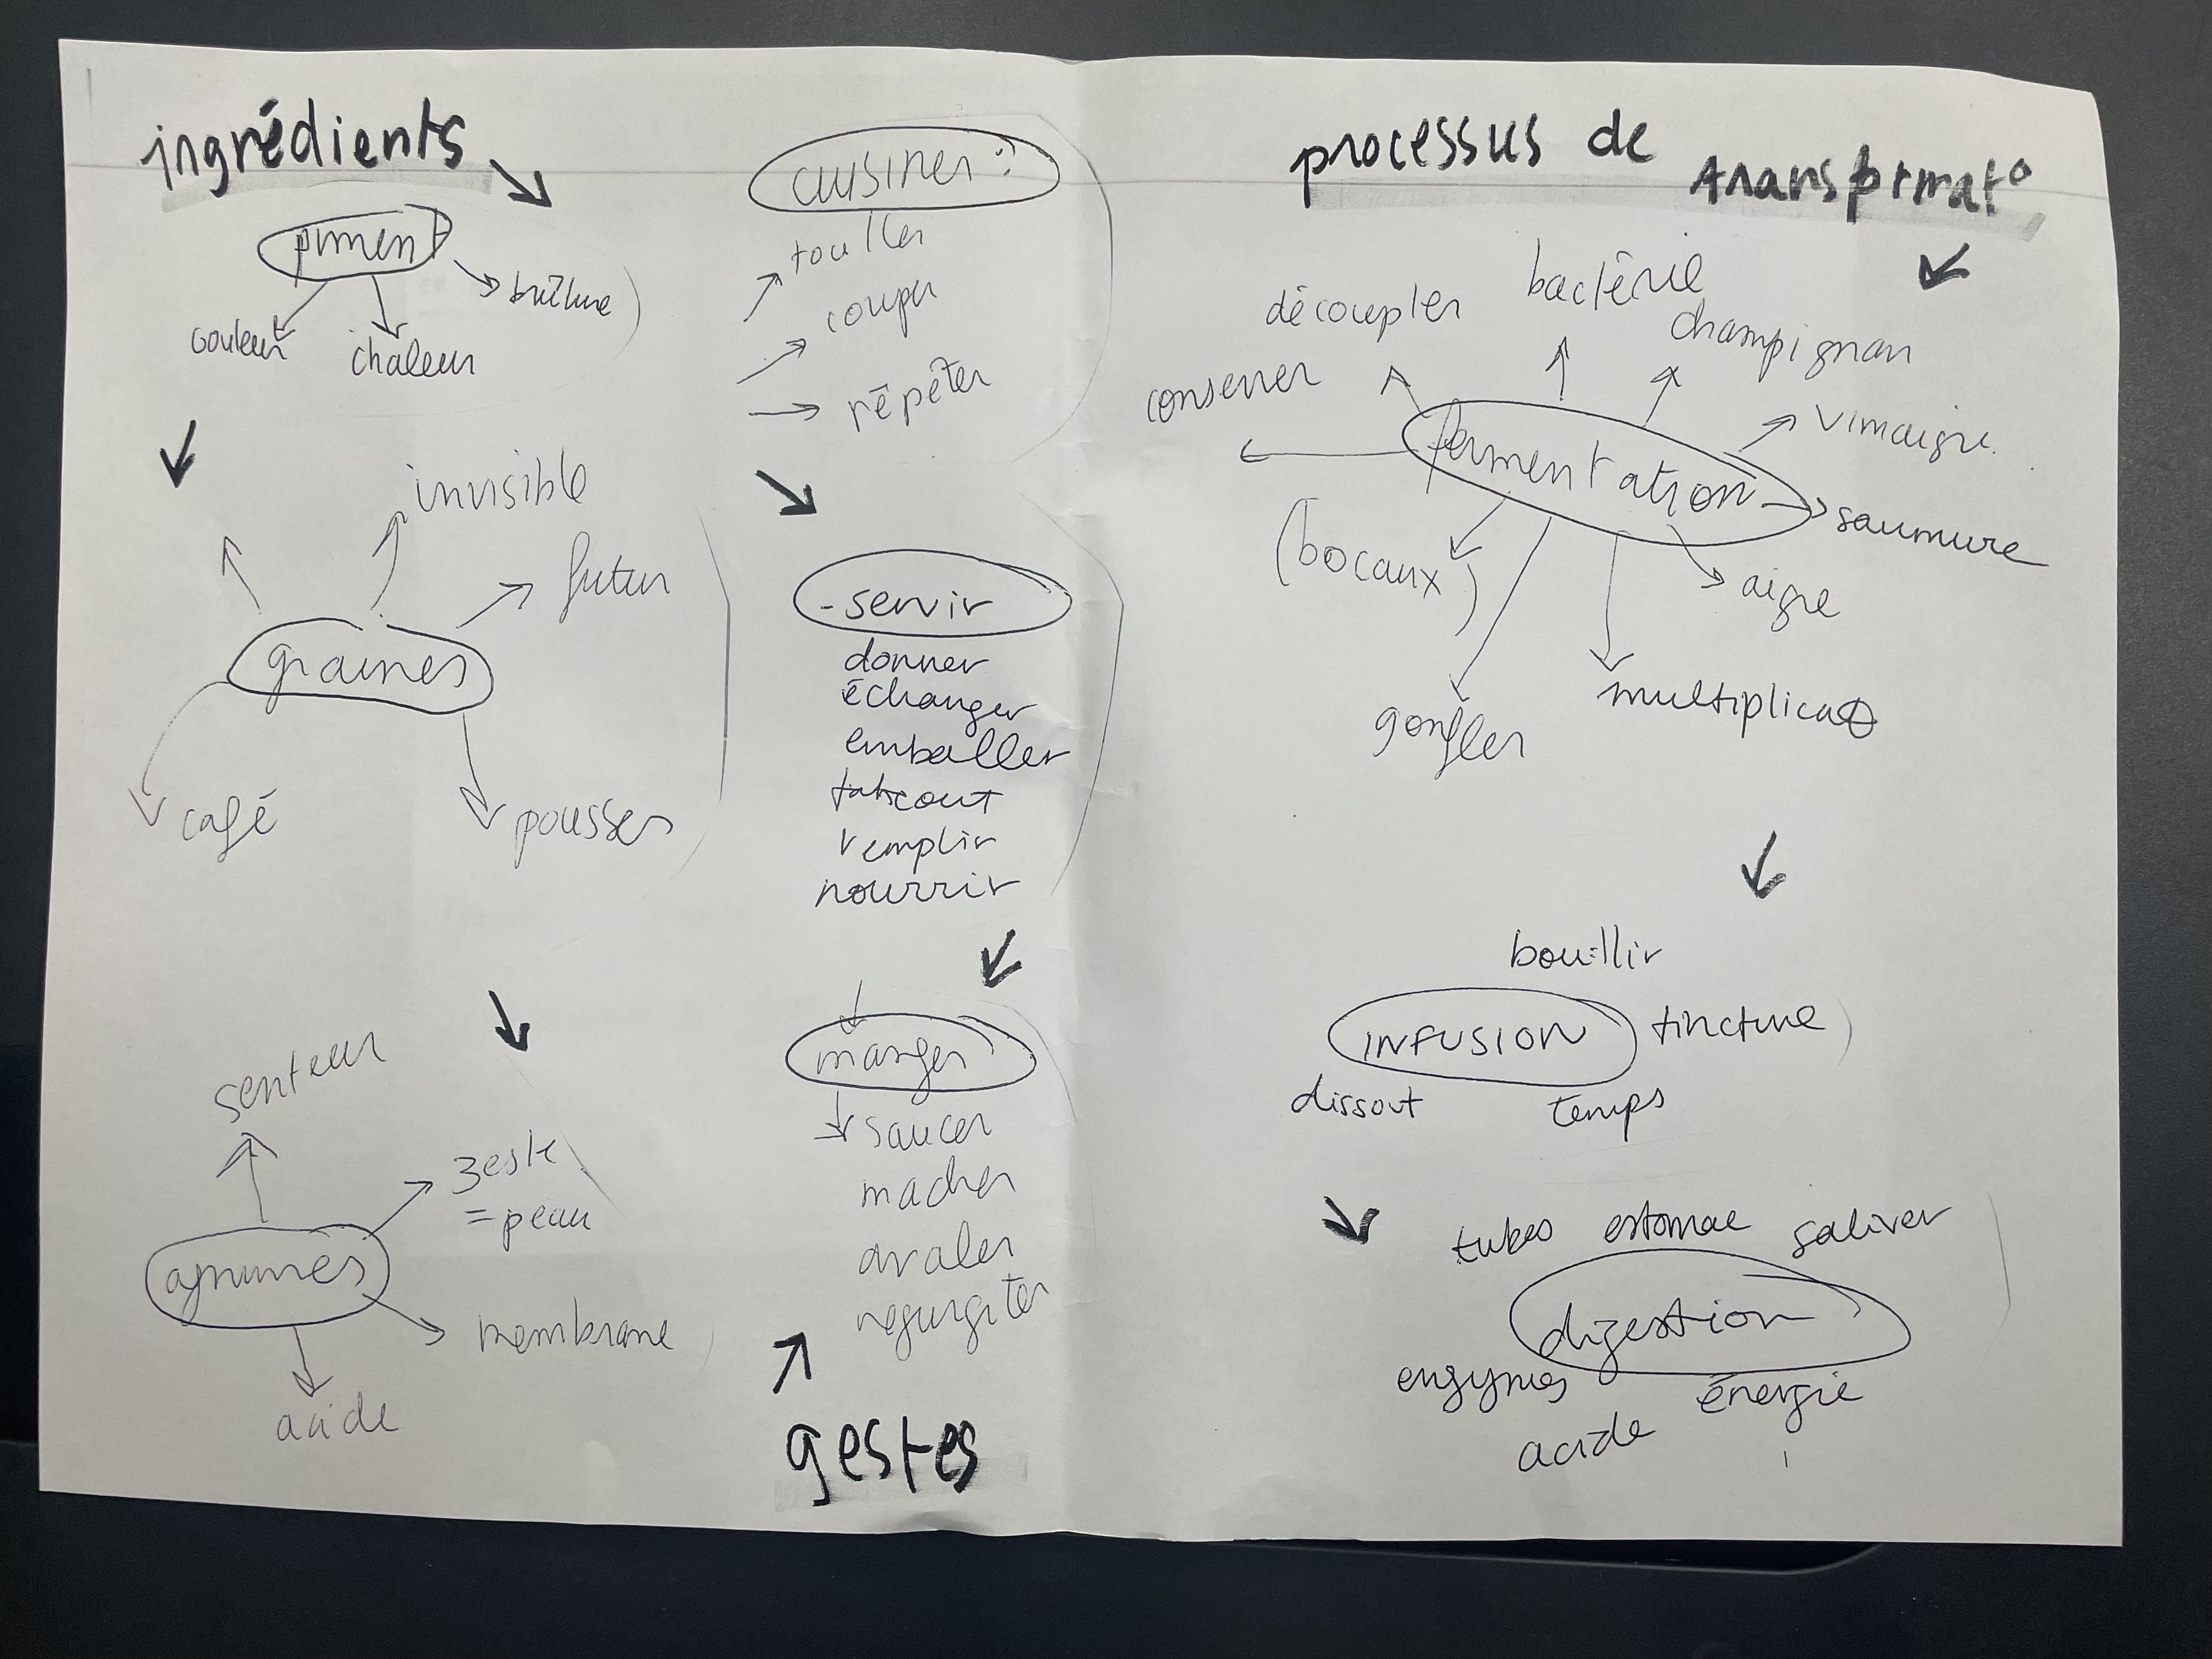 ingrédients
piment
brûlure
couleur
chaleur
invisible
futur
graines
café
pousses
senteur
zeste
=peau
agrumes
membrane
acide
cuisiner :
touiller
couper
répéter
- servir
donner
échanger
emballer
takeout
remplir
nourrir
manger
saucer
macher
avaler
regurgiter
gestes
processus de
transformat°
bactérie
découpler
champignon
conserver
vinaigre
fermentation
saumure
(bocaux)
aigre
multiplicat
gonfler
bouillir
INFUSION
tincture
dissout
temps
tubes estomac saliver
digestion
enzymes
énergie
acide